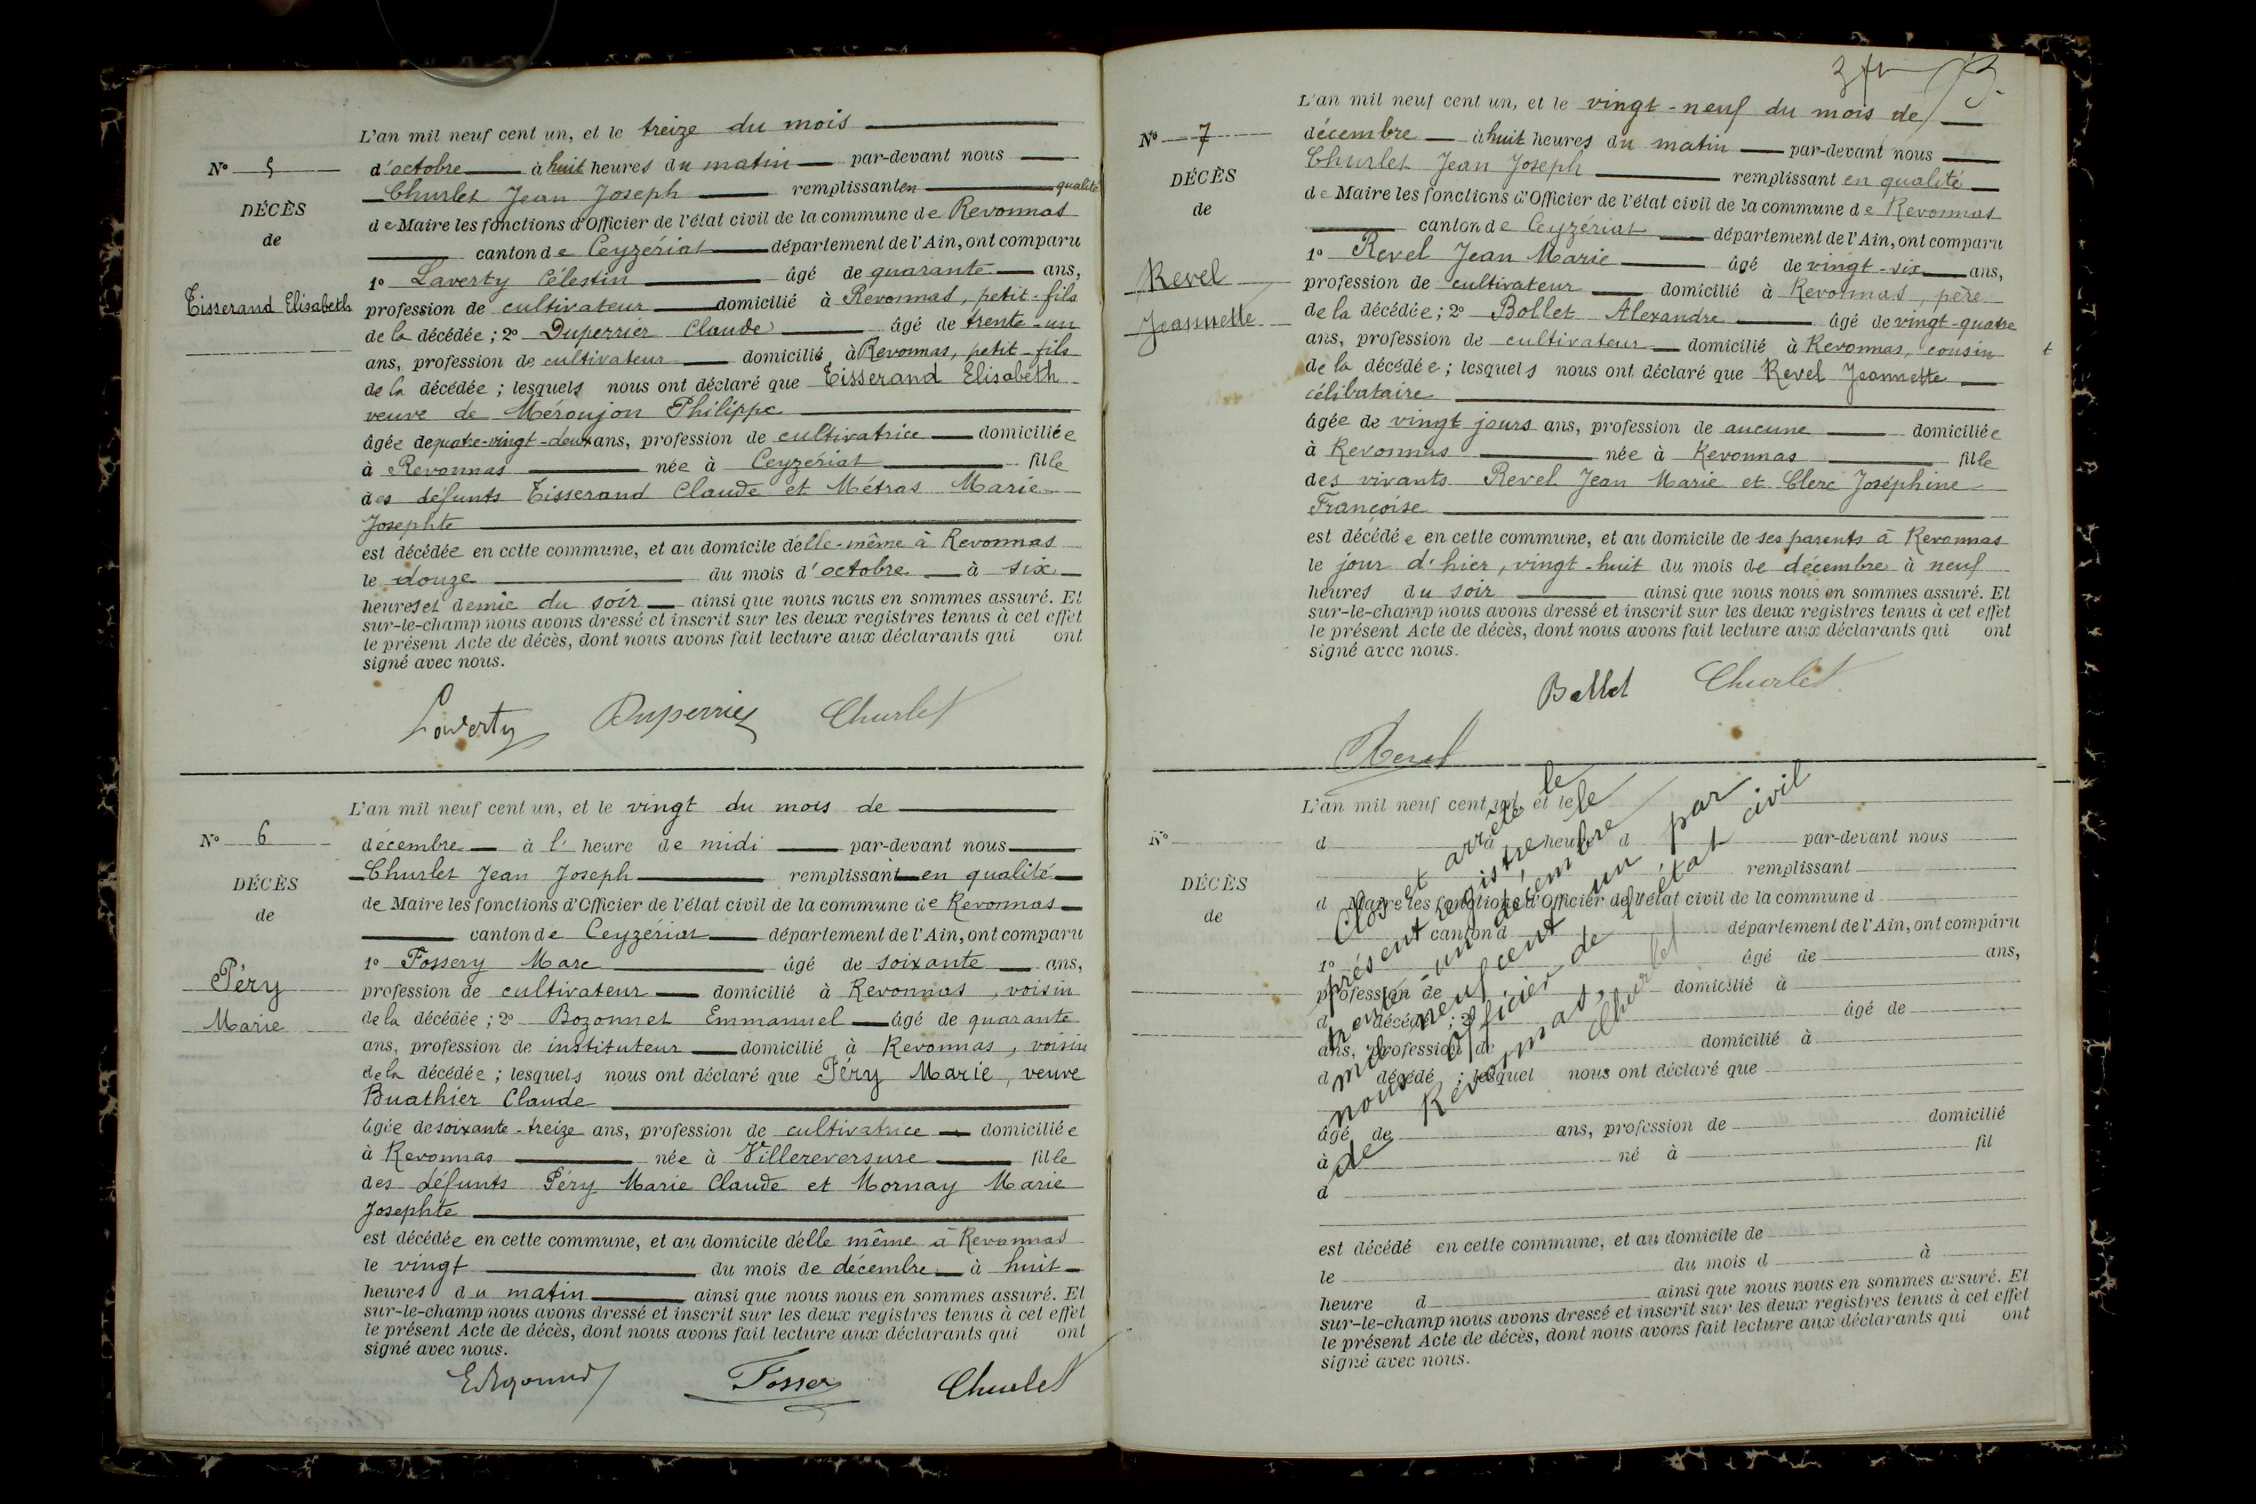 L'an mil neuf cent un, et le treize du mois
N° 5
d'octobre à huit heures du matin par-devant nous
Churlet Jean Joseph remplissant en qualité
DÉCÈS
de Maire les fonctions d'Officier de l'état civil de la commune de Revonnas
de
canton de Ceyzériat département de l'Ain, ont comparu
1° Laverty Célestin âgé de quarante ans,
Tisserand Elisabeth
profession de cultivateur domicilié à Revonnas, petit-fils
de la décédée; 2° Duperrier Claude âgé de trente-un
ans, profession de cultivateur domicilié à Revonnas, petit-fils
de la décédée; lesquels nous ont déclaré que Tisserand Elisabeth
veuve de Méroujon Philippe
âgée de quatre-vingt-deux ans, profession de cultivatrice domiciliée
à Revonnas née à Ceyzériat fille
des défunts Tisserand Claude et Métras Marie
Josephte
est décédée en cette commune, et au domicile d'elle-même à Revonnas
le douze du mois d'octobre à six
heures et demie du soir ainsi que nous nous en sommes assuré. Et
sur-le-champ nous avons dressé et inscrit sur les deux registres tenus à cet effet
le présent Acte de décès, dont nous avons fait lecture aux déclarants qui ont
signé avec nous.
Laverty Duperrier Churlet
L'an mil neuf cent un, et le vingt du mois de
N° 6
décembre à l'heure de midi par-devant nous
Churlet Jean Joseph remplissant en qualité
DÉCÈS
de Maire les fonctions d'Officier de l'état civil de la commune de Revonnas
de
canton de Ceyzériat département de l'Ain, ont comparu
1° Fossery Marc âgé de soixante ans,
Péry
profession de cultivateur domicilié à Revonnas, voisin
Marie
de la décédée; 2° Bozonnet Emmanuel âgé de quarante
ans, profession de instituteur domicilié à Revonnas, voisin
de la décédée; lesquels nous ont déclaré que Péry Marie, veuve
Buathier Claude
âgée de soixante-treize ans, profession de cultivatrice domiciliée
à Revonnas née à Villereversure fille
des défunts Péry Marie Claude et Mornay Marie
Josephte
est décédée en cette commune, et au domicile d'elle même à Revonnas
le vingt du mois de décembre à huit
heures du matin ainsi que nous nous en sommes assuré. Et
sur-le-champ nous avons dressé et inscrit sur les deux registres tenus à cet effet
le présent Acte de décès, dont nous avons fait lecture aux déclarants qui ont
signé avec nous.
Fosser Churlet
L'an mil neuf cent un, et le vingt-neuf du mois de
N° 7
décembre à huit heures du matin par-devant nous
Churlet Jean Joseph remplissant en qualité
DÉCÈS
de Maire les fonctions d'Officier de l'état civil de la commune de Revonnas
de
canton de Ceyzériat département de l'Ain, ont comparu
1° Revel Jean Marie âgé de vingt-six ans,
Revel
profession de cultivateur domicilié à Revonnas, père
Jeannette
de la décédée; 2° Bollet Alexandre âgé de vingt-quatre
ans, profession de cultivateur domicilié à Revonnas, cousin
de la décédée; lesquels nous ont déclaré que Revel Jeannette
célibataire
âgée de vingt jours ans, profession de aucune domiciliée
à Revonnas née à Revonnas fille
des vivants Revel Jean Marie et Clerc Joséphine
Françoise
est décédée en cette commune, et au domicile de ses parents à Revonnas
le jour d'hier, vingt-huit du mois de décembre à neuf
heures du soir ainsi que nous nous en sommes assuré. Et
sur-le-champ nous avons dressé et inscrit sur les deux registres tenus à cet effet
le présent Acte de décès, dont nous avons fait lecture aux déclarants qui ont
signé avec nous.
Bollet Churlet
Revel
L'an mil neuf cent un, et le
N°
d à heure d par-devant nous
remplissant
DÉCÈS
d Maire les fonctions d'Officier de l'état civil de la commune d
de
canton d département de l'Ain, ont comparu
1° âgé de ans,
profession de domicilié à
d décédé ; 2° âgé de
ans, profession de domicilié à
d décédé ; lesquel nous ont déclaré que
âgé de ans, profession de domicilié
à né à fil
d
est décédé en cette commune, et au domicile de
le du mois d à
heure d ainsi que nous nous en sommes assuré. Et
sur-le-champ nous avons dressé et inscrit sur les deux registres tenus à cet effet
le présent Acte de décès, dont nous avons fait lecture aux déclarants qui ont
signé avec nous.
Clos et arrêté le
présent registre le
trente-un décembre
mil neuf cent un par
nous officier de l'état civil
de Revonnas,
Churlet